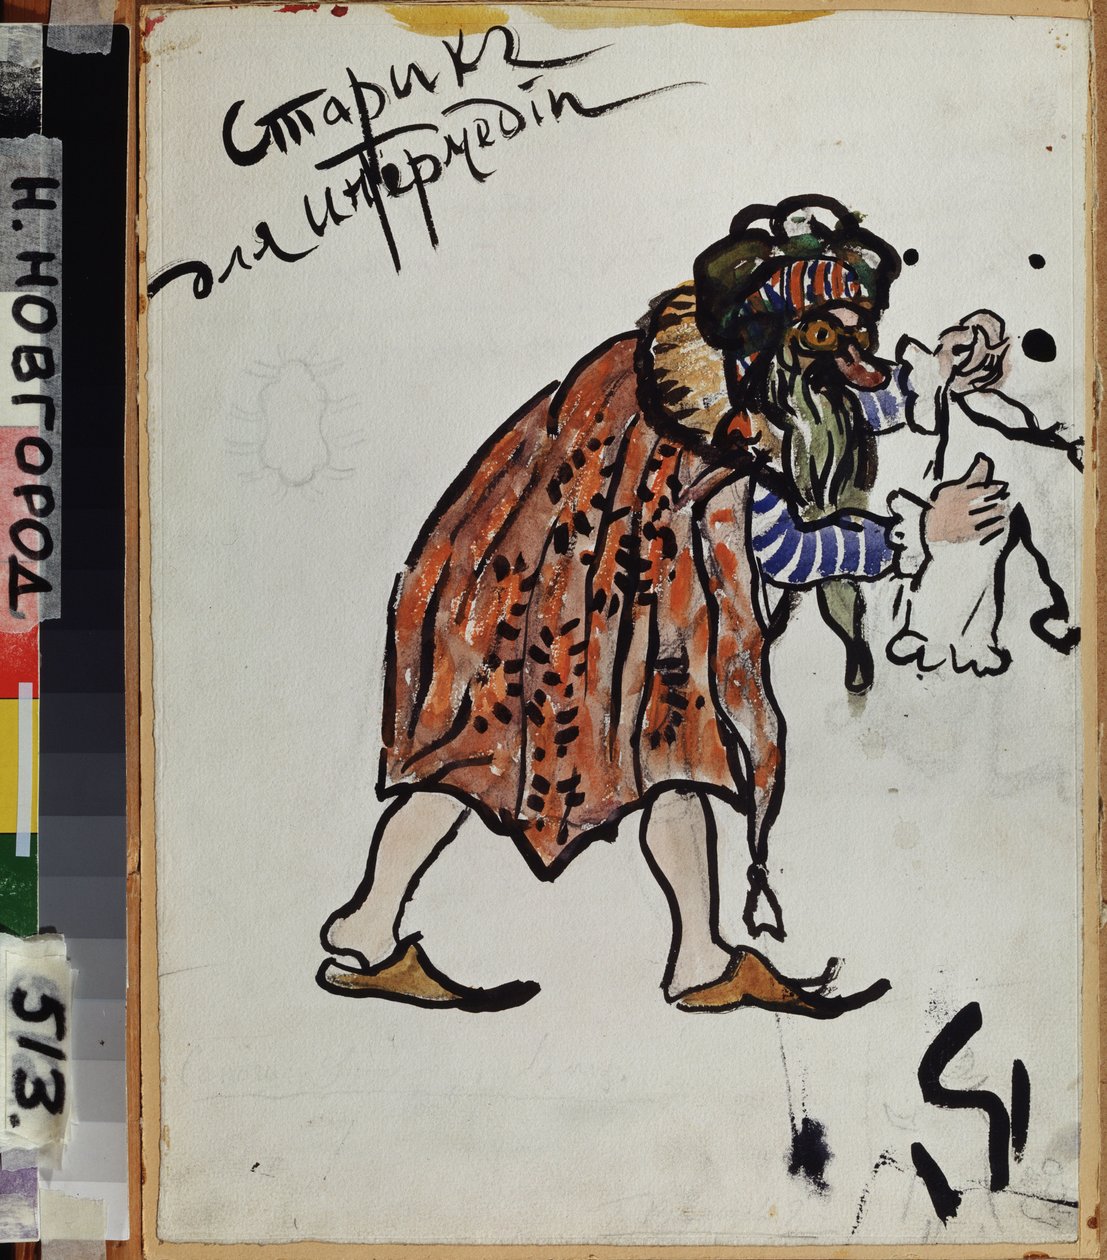 Старикъ
для интермедiй
Н. НОВГОРОД
513.